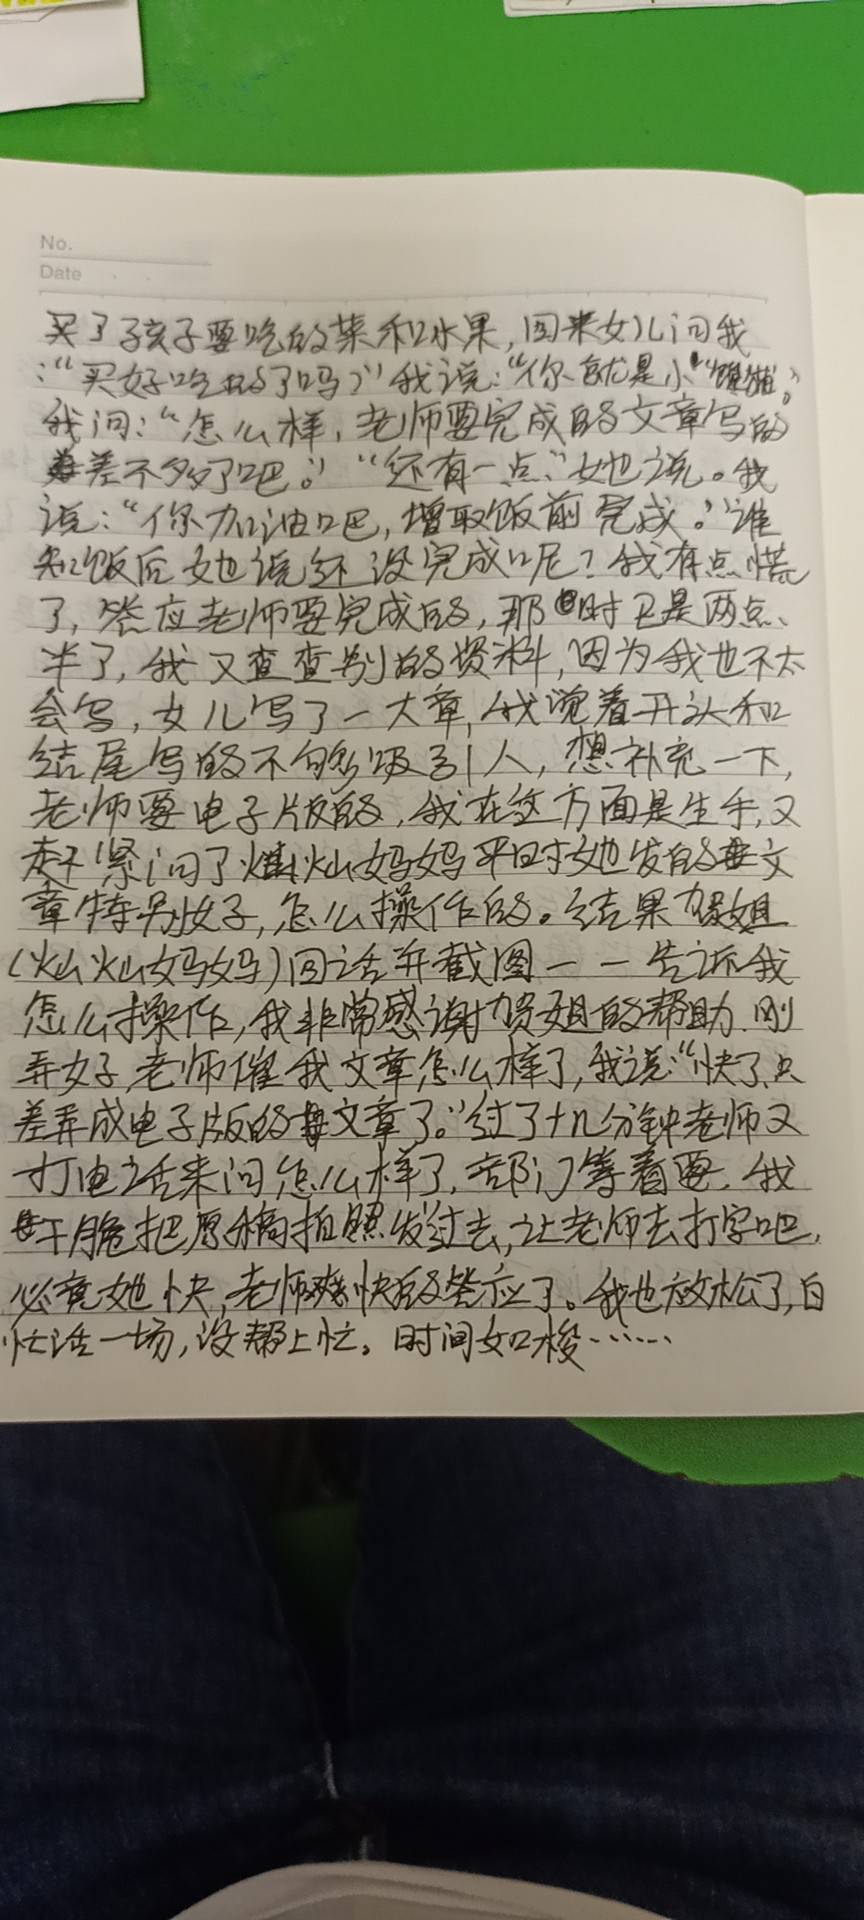 No.
Date
买了孩子要吃的菜和水果,回来女儿问我
:“买好吃的了吗?”我说:“你就是小“馋猫。”
我问:“怎么样,老师要完成的文章写的
差不多了吧。”“还有一点”她说。我
说:“你加油吧,增取饭前完成。”谁
知饭后她说还没完成呢?我有点慌
了,答应老师要完成的,那时已是两点
半了,我又查查别的资料,因为我也不太
会写,女儿写了一大章,我觉着开头和
结尾写的不够吸引人,想补充一下,
老师要电子版的,我在这方面是生手,又
赶紧问了灿灿妈妈平时她发的文
章特别好,怎么操作的。结果贺姐
(灿灿妈妈)回话并截图一一告诉我
怎么操作,我非常感谢贺姐的帮助.刚
弄好,老师催我文章怎么样了,我说:“快了,只
差弄成电子版的文章了。”过了十几分钟老师又
打电话来问怎么样了,部门等着要.我
干脆把原稿拍照发过去,让老师去打字吧,
必竟她快,老师爽快的答应了。我也放松了,白
忙活一场,没帮上忙。时间如梭……